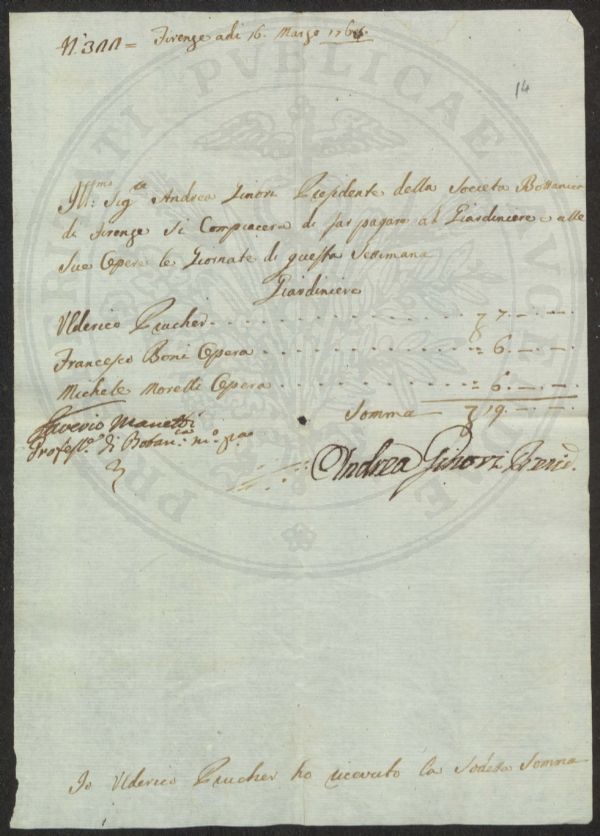 N° 300 = Firenze adi 16. Marzo 1766.
14
Ill:mo Sig:re Andrea Ginori Presidente della Società Bottanica
di Firenze Si Compiacerà di far pagare al Giardiniere e alle
Sue Opere le Giornate di questa Settimana
Giardiniere
Ulderico Prucher 7. — . —
Francesco Boni Opera = 6. — . —
Michele Morelli Opera = 6. — . —
Somma 19. — . —
Saverio Manetti
Profess:e di Botan:ca m:o p:a
Andrea Ginori Presid.
Io Ulderico Prucher ho ricevuto la Sodeta Somma
PUBLICAE